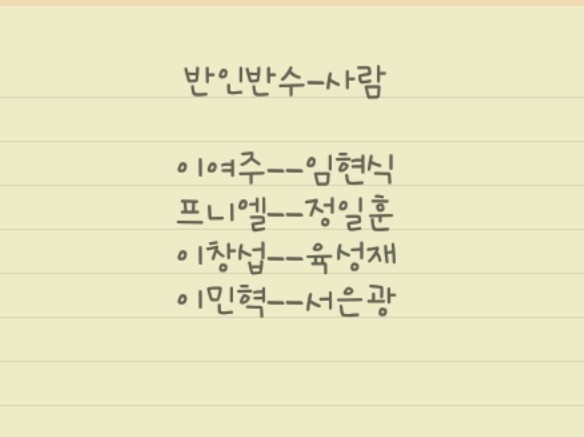 반인반수-사람
이여주--임현식
프니엘--정일훈
이창섭--육성재
이민혁--서은광